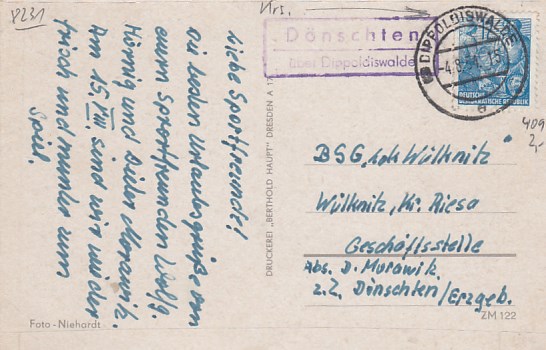 8231
Krs.
Dönschten
über Dippoldiswalde
DIPPOLDISWALDE
-4.8.54.-15
e
DEUTSCHE
DEMOKRATISCHE REPUBLIK
409
2,-
Liebe Sportfreunde!
Die besten Urlaubsgrüße von
euren Sportfreunden Wolfg.
Hönnig und Dieter Morawik.
Am 15. VIII. sind wir wieder
frisch und munter zum
Spiel.
DRUCKEREI „BERTHOLD HAUPT" DRESDEN A 17
BSG „ Wülknitz"
Wülknitz, Kr. Riesa
Geschäftsstelle
Abs. D. Morawik
z.Z. Dönschten/Erzgeb.
Foto - Niehardt
ZM 122